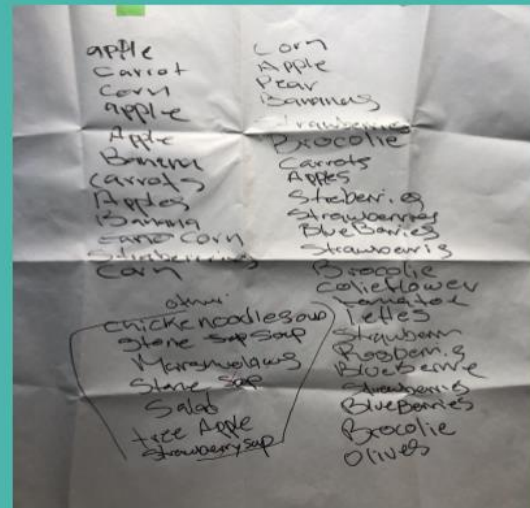 apple
Carrot
Corn
apple
Apple
Banana
carrots
Apples
Banana
Corn
Corn
other:
chickenoodlesoup
Stone Sop Soup
Stone Sop
Salad
tree Apple
Strawberrysoup
Corn
Apple
Pear
Bananas
Strawberries
Brocolie
Carrots
Apples
Streiberries
Strawberries
BlueBarries
Strawberris
Brocolie
Colieflower
tomatoe
Lettes
Strawberri
Rosberries
Blueberrie
Strawberries
BlueBerries
Brocolie
Olives